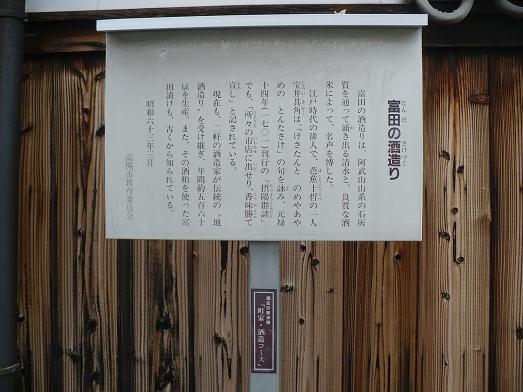 富田の酒造り
とんだ さけ
富田の酒造りは、阿武山山系の石灰
質を通って涌き出る清水と、良質な酒
米によって、名声を博した。
江戸時代の俳人で、芭蕉十哲の一人
宝井其角は「けさたんと のめやあや
めの とんたさけ」の句を詠み、元禄
十四年(一七〇一)刊行の「摂陽群談」
でも、「所々の市店に出せり、香味勝て
宣し」と記されている。
現在も、二軒の酒造家が伝統の〝地
酒造り〟を受け継ぎ、年間約五百六十
㎘を生産。また、その酒粕を使った富
田漬けも、古くから知られている。
昭和六十三年三月
高槻市教育委員会
歴史の散歩路
「町家・酒造コース」